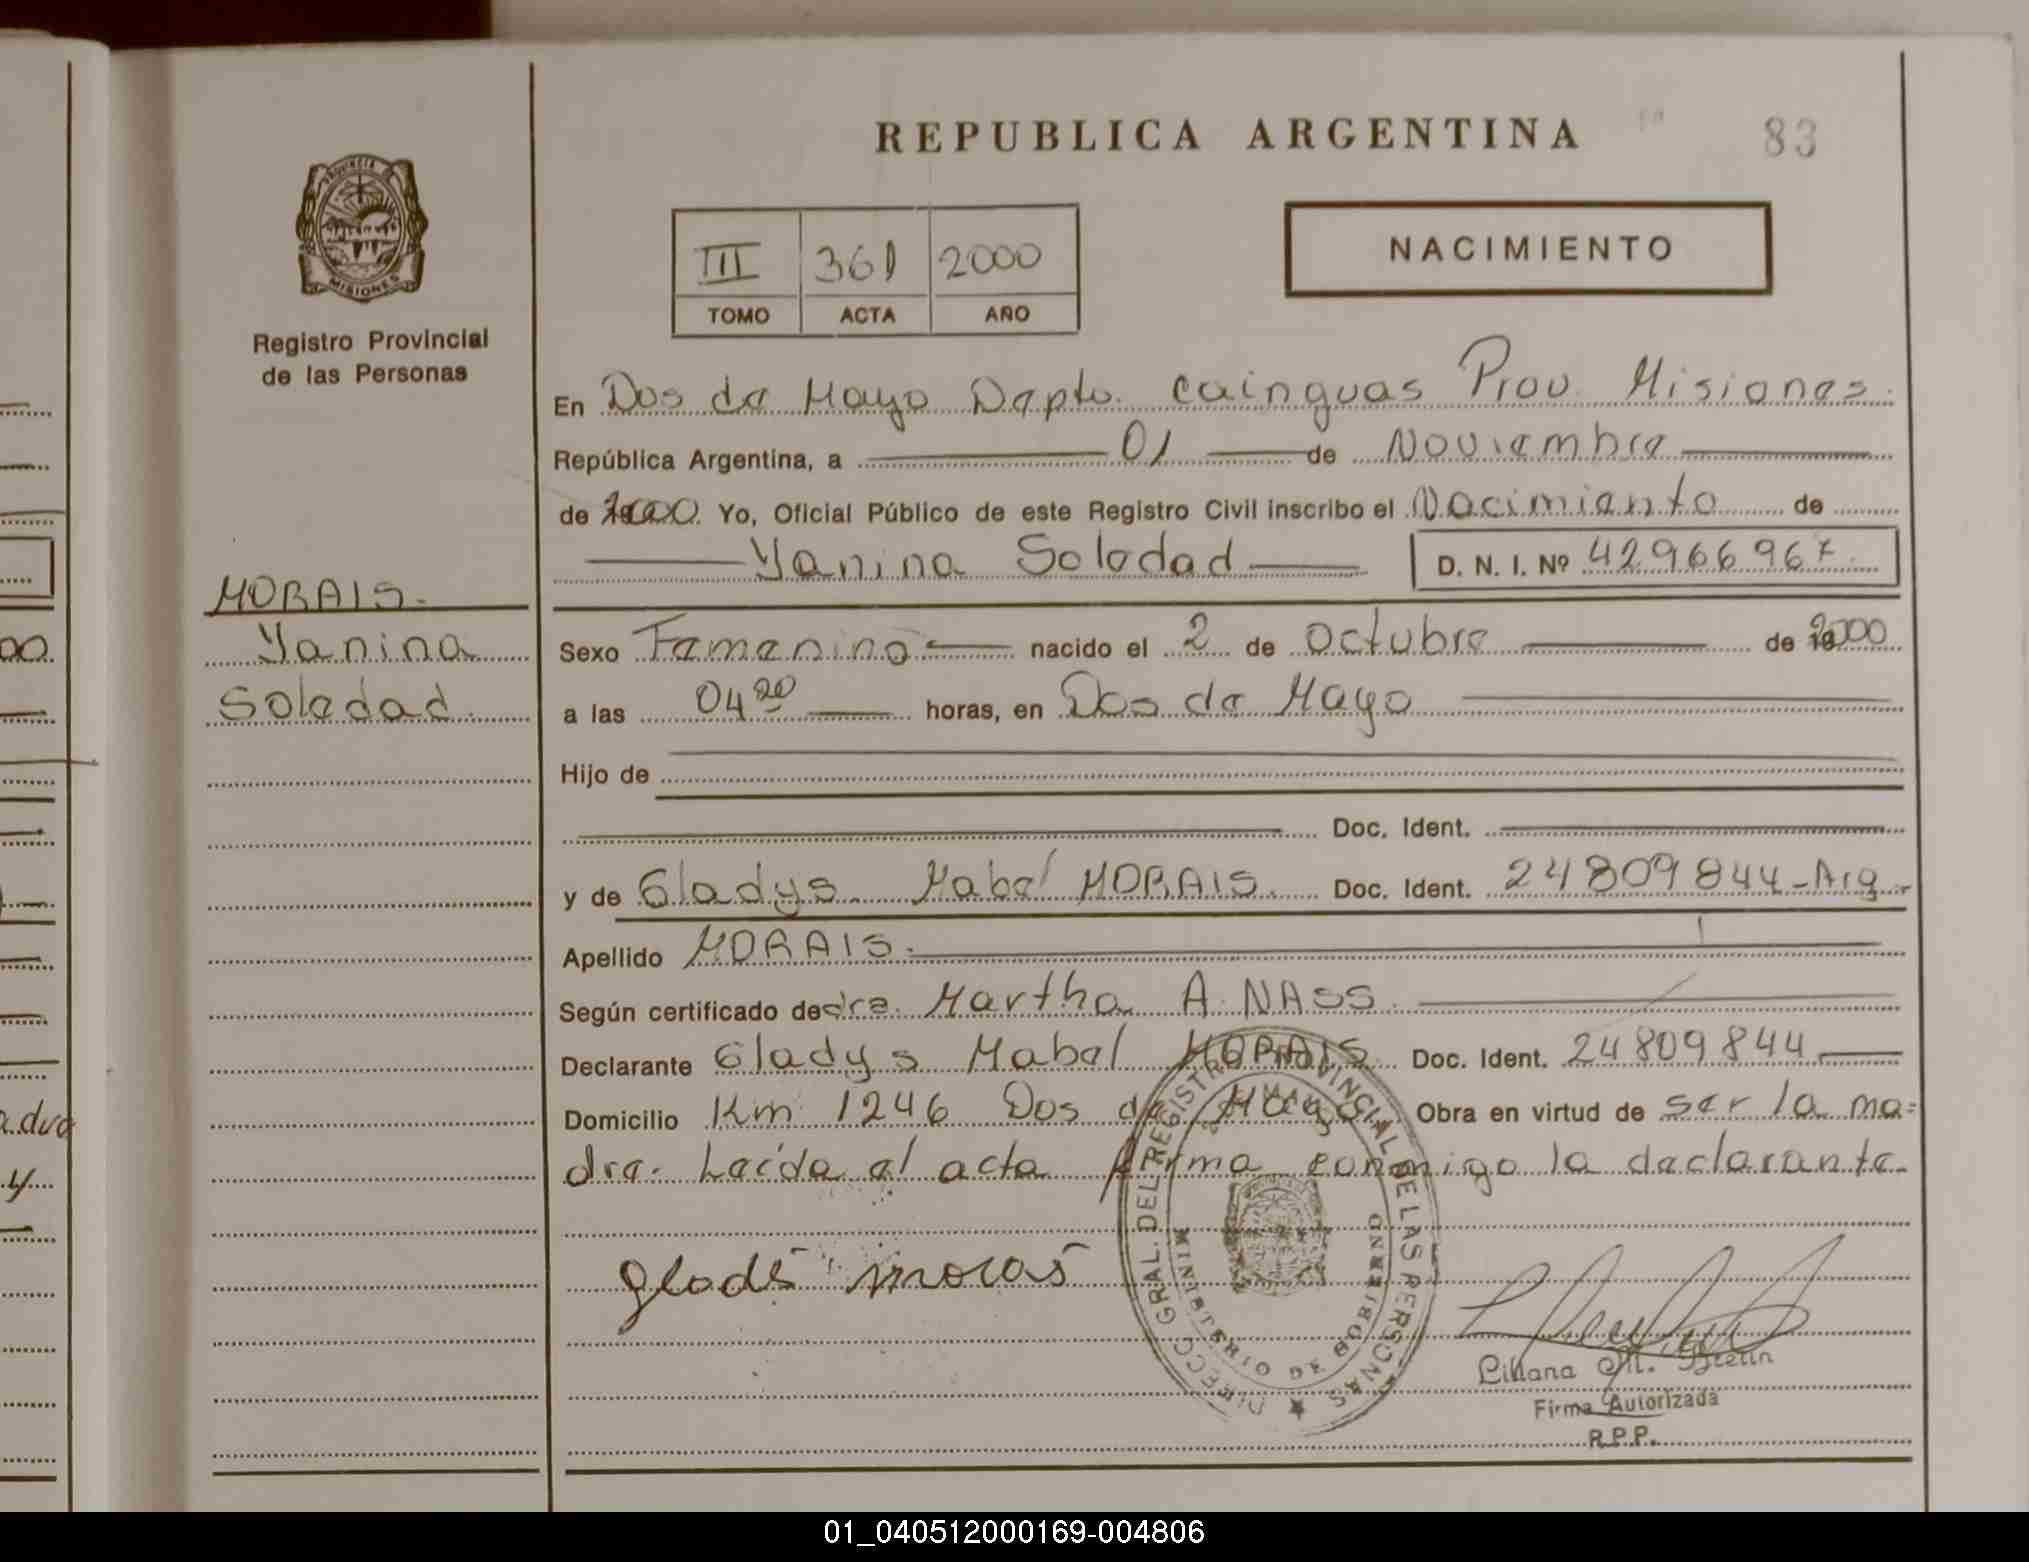 REPUBLICA ARGENTINA
83
III 361 2000
TOMO ACTA AÑO
NACIMIENTO
MISIONES
Registro Provincial
de las Personas
En Dos de Mayo Depto. Cainguas Prov. Misiones.
República Argentina, a 01 de Noviembre
de 2000. Yo, Oficial Público de este Registro Civil inscribo el Nacimiento de
Yanina Soledad D. N. I. Nº 42.966.967.
MORAIS.
Yanina
Soledad.
Sexo Femenino nacido el 2 de Octubre de 2000
a las 04 20 horas, en Dos de Mayo
Hijo de
Doc. Ident.
y de Gladys Mabel MORAIS. Doc. Ident. 24809844-Arg.
Apellido MORAIS.
Según certificado de dra. Martha A. NASS.
Declarante Gladys Mabel MORAIS. Doc. Ident. 24809844
Domicilio Km 1246 Dos de Mayo Obra en virtud de ser la ma=
dre. Leída el acta firma conmigo la declarante.
DIRECC. GRAL. DEL REGISTRO PROVINCIAL DE LAS PERSONAS
MINISTERIO DE GOBIERNO
Liliana M.
Firma Autorizada
R.P.P.
01_040512000169-004806